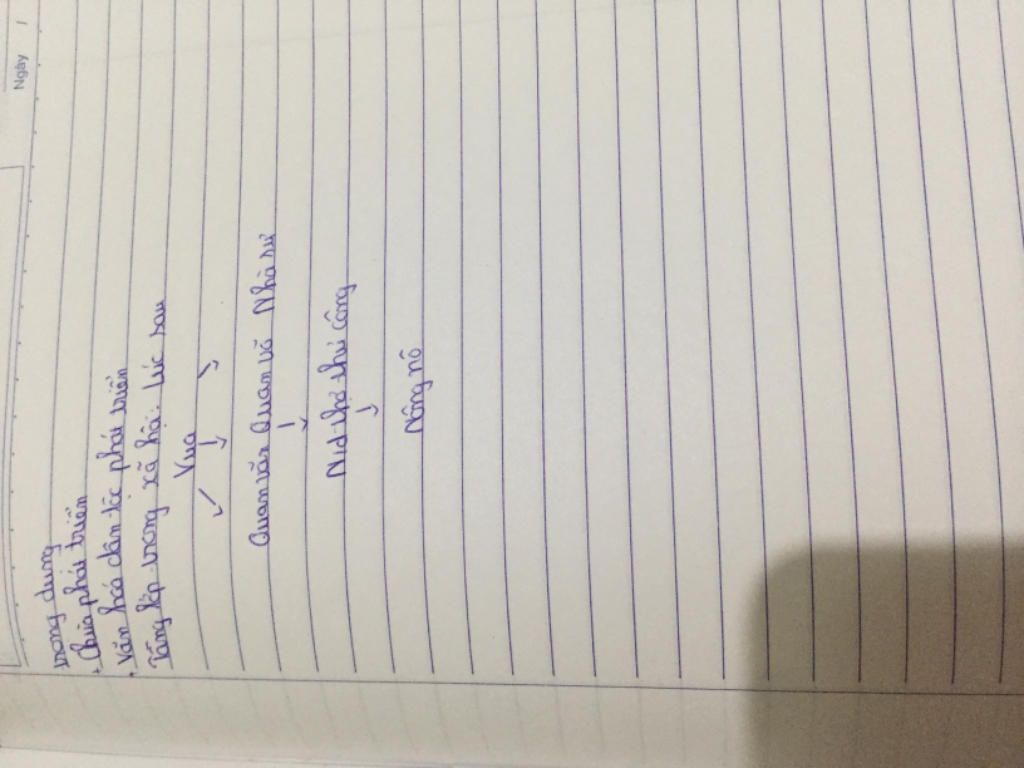 Ngày /
trong dung
+ Chùa phát triển
+ Văn hoá dân tộc phát triển
Tầng lớp trong xã hội lúc sau
Vua
↙ ↓ ↘
Quan văn Quan võ Nhà sư
↓
N1d thợ thủ công
↓
Nông nô